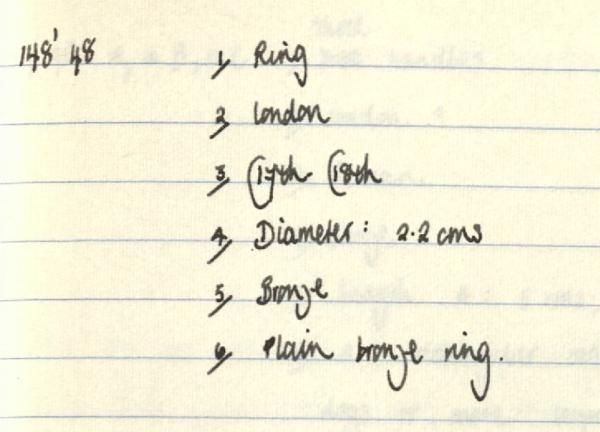 148'48 1, Ring
2, London
3, C17th C18th
4, Diameter: 2.2 cms
5, Bronze
6, Plain bronze ring.